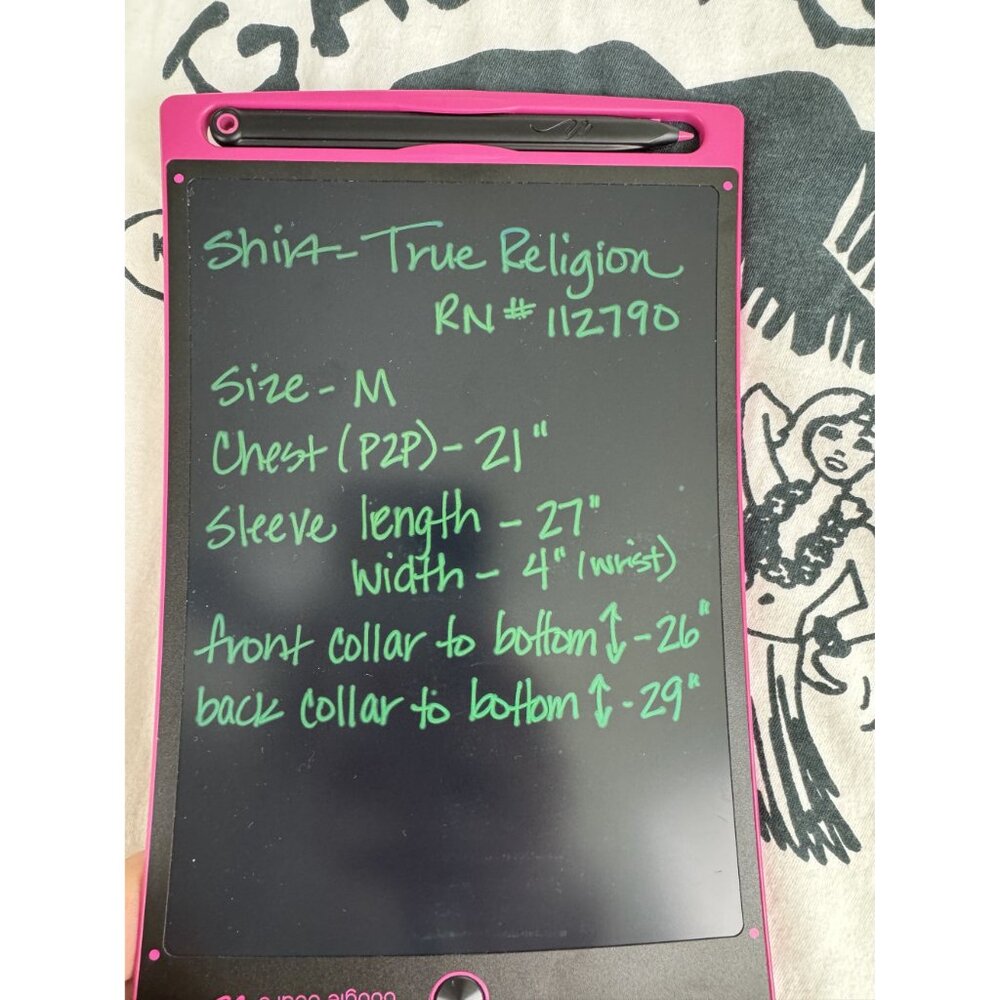 Shirt - True Religion
RN # 112790
Size - M
Chest (P2P) - 21"
Sleeve length - 27"
Width - 4" (wrist)
front collar to bottom ↕ - 26"
back collar to bottom ↕ - 29"